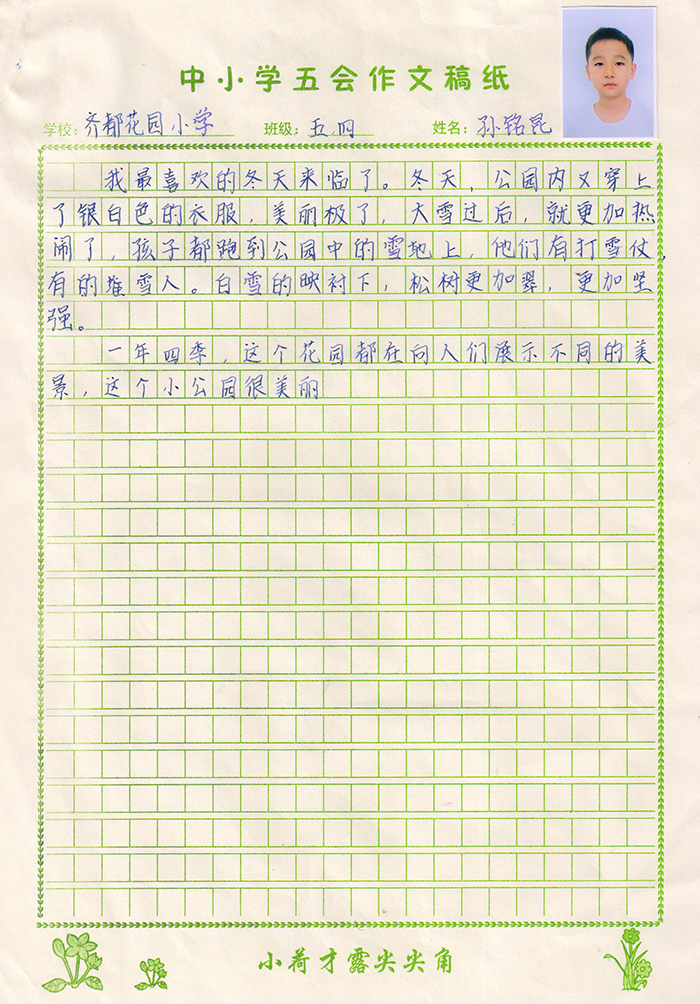 中小学五会作文稿纸
学校：齐都花园小学 班级：五.四 姓名：孙铭昆
我最喜欢的冬天来临了。冬天，公园内又穿上
了银白色的衣服，美丽极了，大雪过后，就更加热
闹了，孩子都跑到公园中的雪地上，他们有打雪仗，
有的堆雪人。白雪的映衬下，松树更加翠，更加坚
强。
一年四季，这个花园都在向人们展示不同的美
景，这个小公园很美丽
小荷才露尖尖角